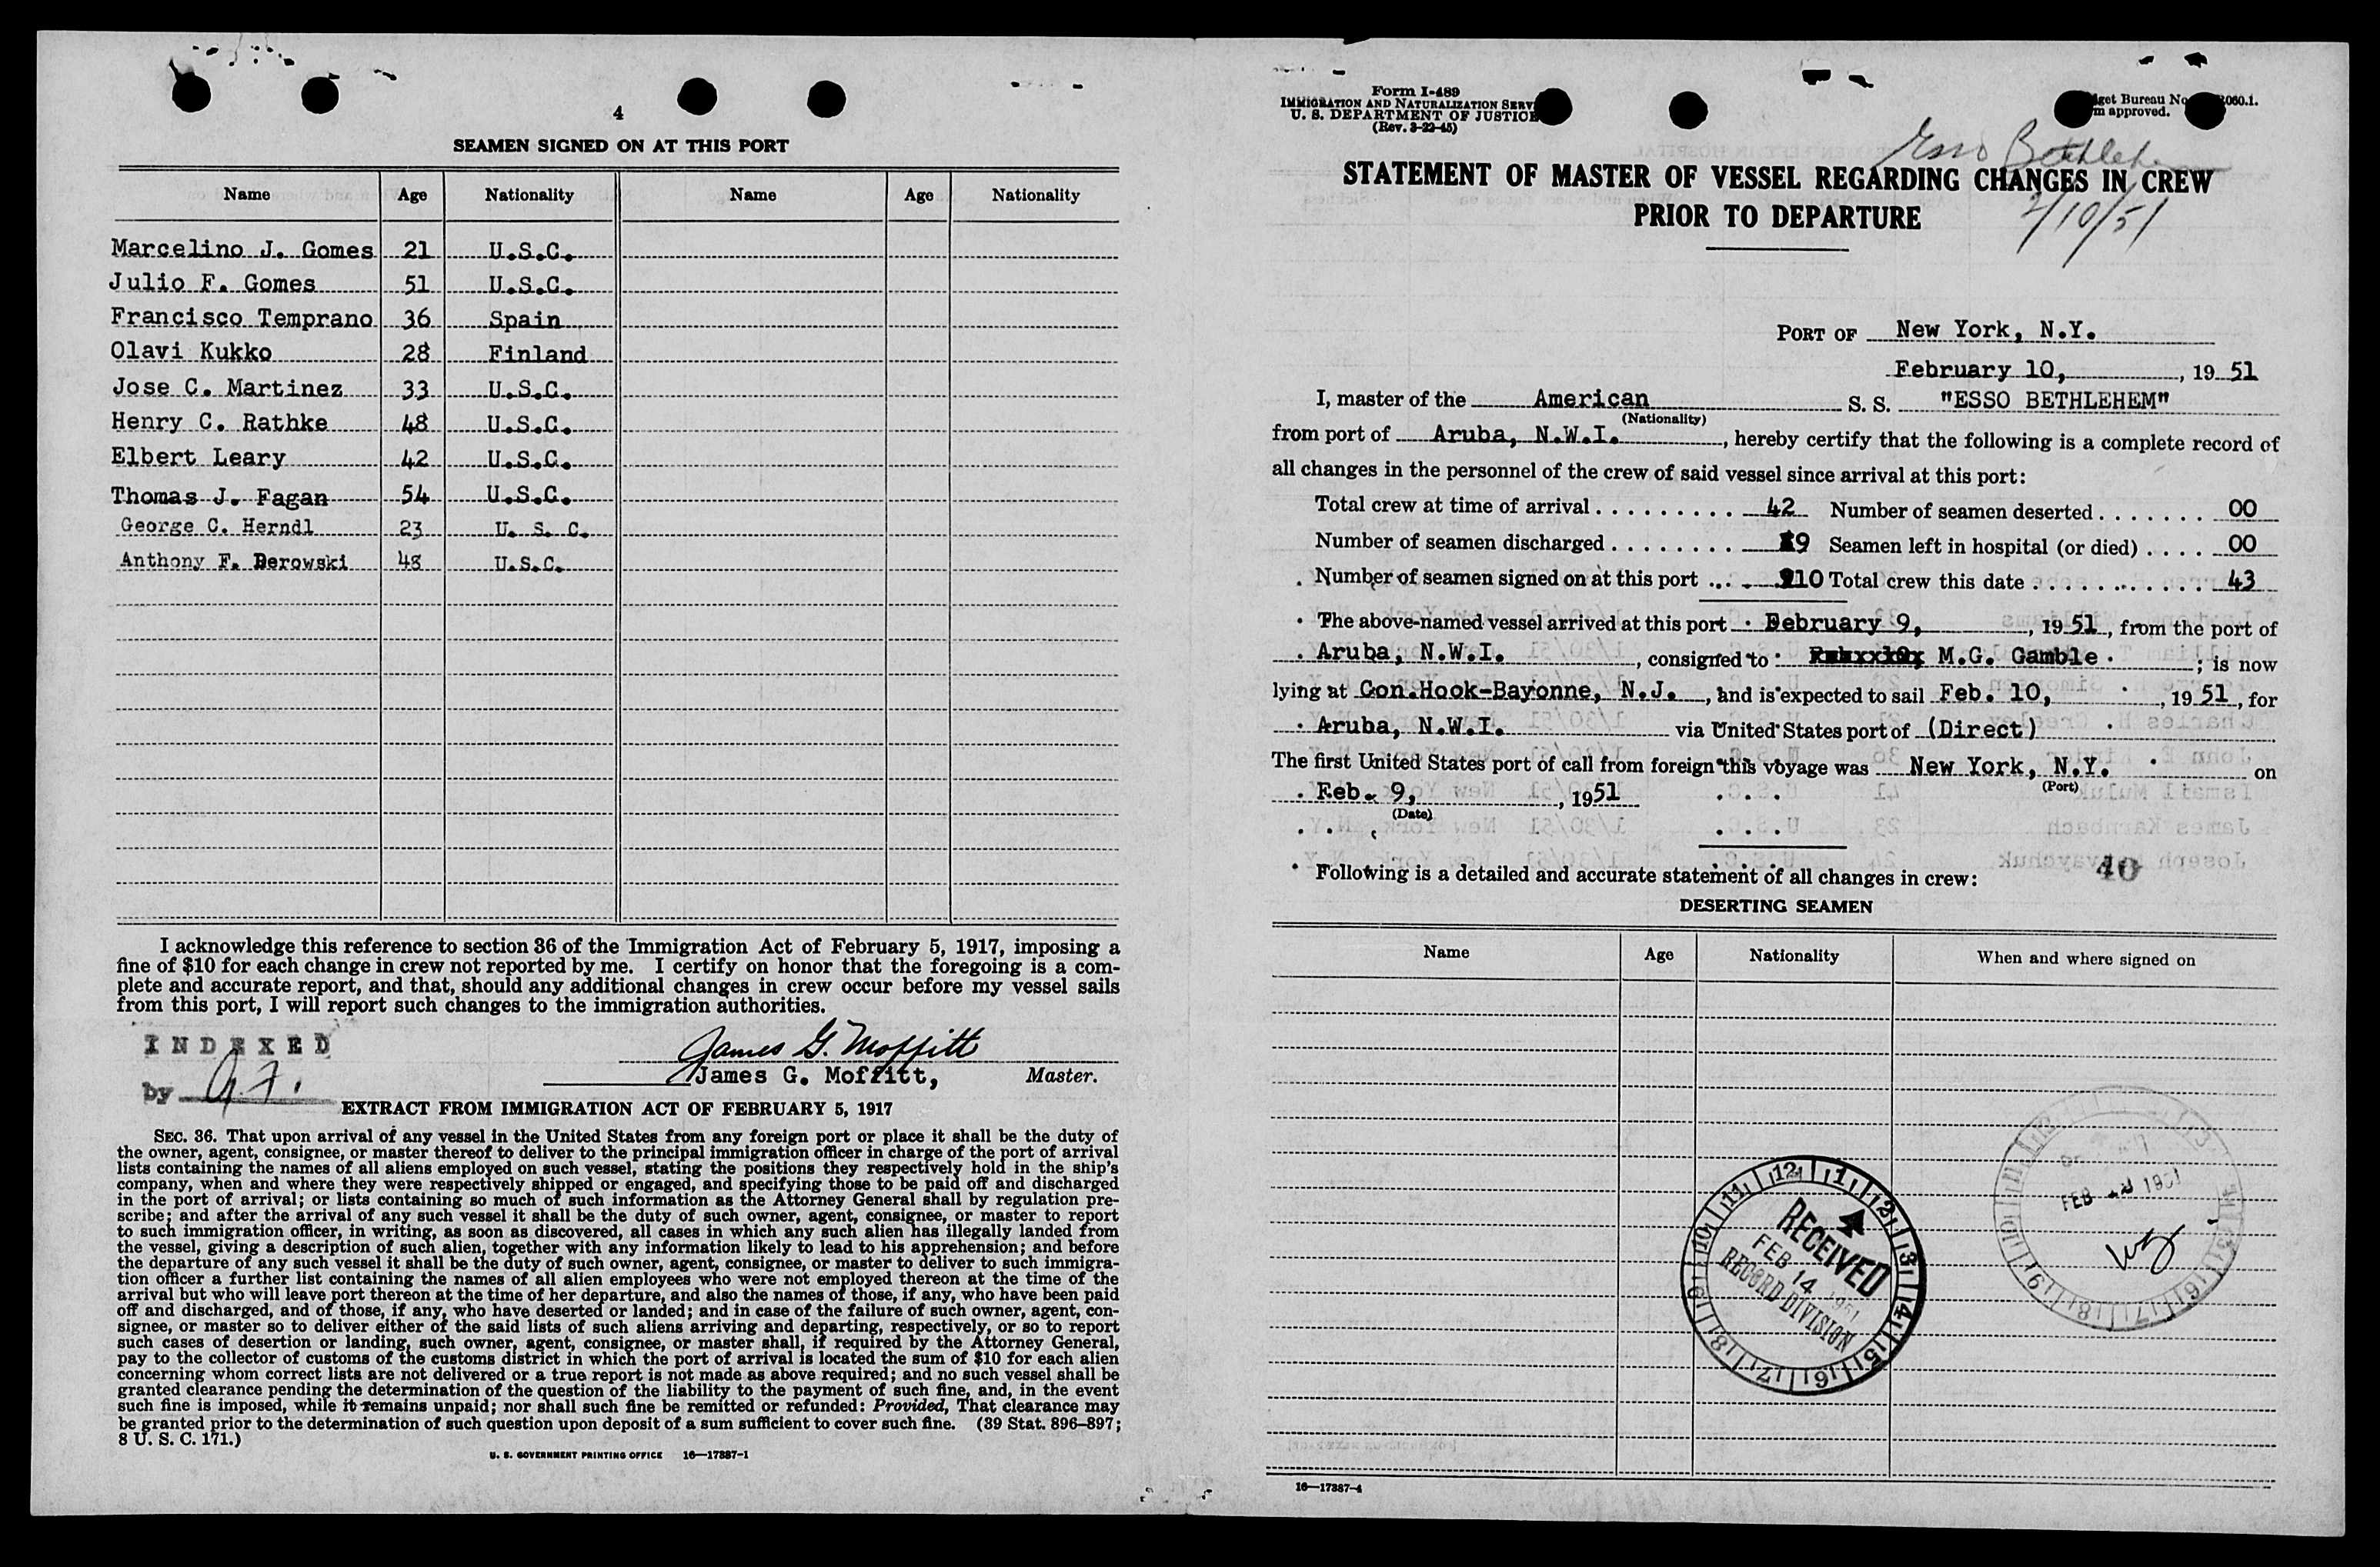 4
SEAMEN SIGNED ON AT THIS PORT
Name Age Nationality Name Age Nationality
Marcelino J. Gomes 21 U.S.C.
Julio F. Gomes 51 U.S.C.
Francisco Temprano 36 Spain
Olavi Kukko 28 Finland
Jose C. Martinez 33 U.S.C.
Henry C. Rathke 48 U.S.C.
Elbert Leary 42 U.S.C.
Thomas J. Fagan 54 U.S.C.
George C. Herndl 23 U. S. C.
Anthony F. Derowski 48 U.S.C.
I acknowledge this reference to section 36 of the Immigration Act of February 5, 1917, imposing a
fine of $10 for each change in crew not reported by me. I certify on honor that the foregoing is a com-
plete and accurate report, and that, should any additional changes in crew occur before my vessel sails
from this port, I will report such changes to the immigration authorities.
INDEXED
by
James G. Moffitt
James G. Moffitt, Master.
EXTRACT FROM IMMIGRATION ACT OF FEBRUARY 5, 1917
SEC. 36. That upon arrival of any vessel in the United States from any foreign port or place it shall be the duty of
the owner, agent, consignee, or master thereof to deliver to the principal immigration officer in charge of the port of arrival
lists containing the names of all aliens employed on such vessel, stating the positions they respectively hold in the ship's
company, when and where they were respectively shipped or engaged, and specifying those to be paid off and discharged
in the port of arrival; or lists containing so much of such information as the Attorney General shall by regulation pre-
scribe; and after the arrival of any such vessel it shall be the duty of such owner, agent, consignee, or master to report
to such immigration officer, in writing, as soon as discovered, all cases in which any such alien has illegally landed from
the vessel, giving a description of such alien, together with any information likely to lead to his apprehension; and before
the departure of any such vessel it shall be the duty of such owner, agent, consignee, or master to deliver to such immigra-
tion officer a further list containing the names of all alien employees who were not employed thereon at the time of the
arrival but who will leave port thereon at the time of her departure, and also the names of those, if any, who have been paid
off and discharged, and of those, if any, who have deserted or landed; and in case of the failure of such owner, agent, con-
signee, or master so to deliver either of the said lists of such aliens arriving and departing, respectively, or so to report
such cases of desertion or landing, such owner, agent, consignee, or master shall, if required by the Attorney General,
pay to the collector of customs of the customs district in which the port of arrival is located the sum of $10 for each alien
concerning whom correct lists are not delivered or a true report is not made as above required; and no such vessel shall be
granted clearance pending the determination of the question of the liability to the payment of such fine, and, in the event
such fine is imposed, while it remains unpaid; nor shall such fine be remitted or refunded: Provided, That clearance may
be granted prior to the determination of such question upon deposit of a sum sufficient to cover such fine. (39 Stat. 896–897;
8 U. S. C. 171.)
U. S. GOVERNMENT PRINTING OFFICE 16—17387-1
Form I-489
IMMIGRATION AND NATURALIZATION SERV
U. S. DEPARTMENT OF JUSTICE
(Rev. 3-22-45)
get Bureau No. 060.1.
m approved.
Esso Bethlehem
2/10/51
STATEMENT OF MASTER OF VESSEL REGARDING CHANGES IN CREW
PRIOR TO DEPARTURE
PORT OF New York, N.Y.
February 10, , 19 51
I, master of the American S. S. "ESSO BETHLEHEM"
(Nationality)
from port of Aruba, N.W.I. , hereby certify that the following is a complete record of
all changes in the personnel of the crew of said vessel since arrival at this port:
Total crew at time of arrival 42 Number of seamen deserted 00
Number of seamen discharged 9 Seamen left in hospital (or died) 00
Number of seamen signed on at this port 10 Total crew this date 43
The above-named vessel arrived at this port February 9, , 19 51, from the port of
Aruba, N.W.I. , consigned to M.G. Gamble ; is now
lying at Con.Hook-Bayonne, N.J. , and is expected to sail Feb. 10, , 19 51, for
Aruba, N.W.I. via United States port of (Direct)
The first United States port of call from foreign this voyage was New York, N.Y. on
(Port)
Feb. 9, , 1951
(Date)
40
Following is a detailed and accurate statement of all changes in crew:
DESERTING SEAMEN
Name Age Nationality When and where signed on
RECEIVED
FEB 14 1951
RECORD DIVISION
FEB 1951
16—17387-4